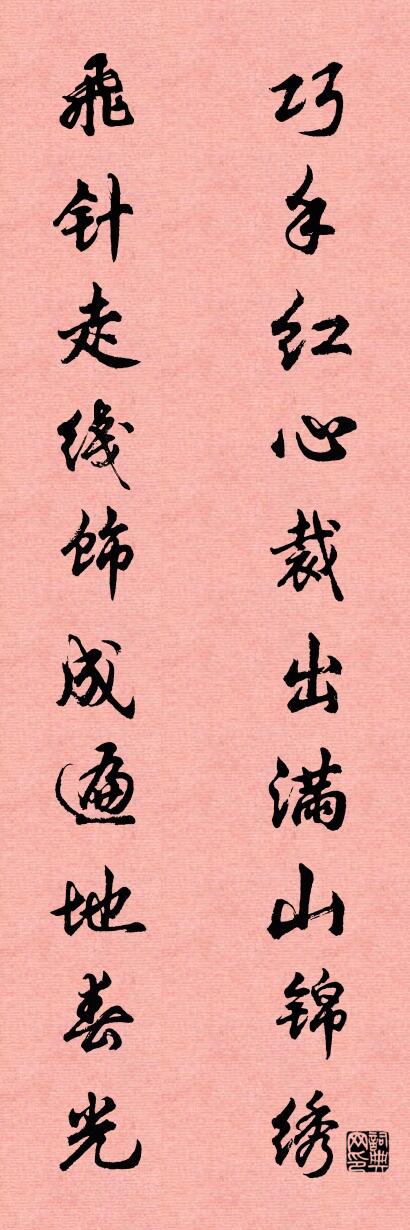 巧手红心裁出满山锦绣
飞针走线饰成遍地春光
詞典网印